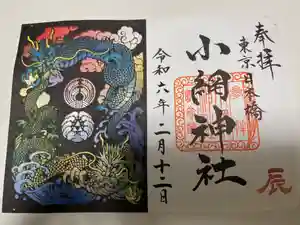 奉拝
東京日本橋
小網神社
令和六年二月十二日
辰